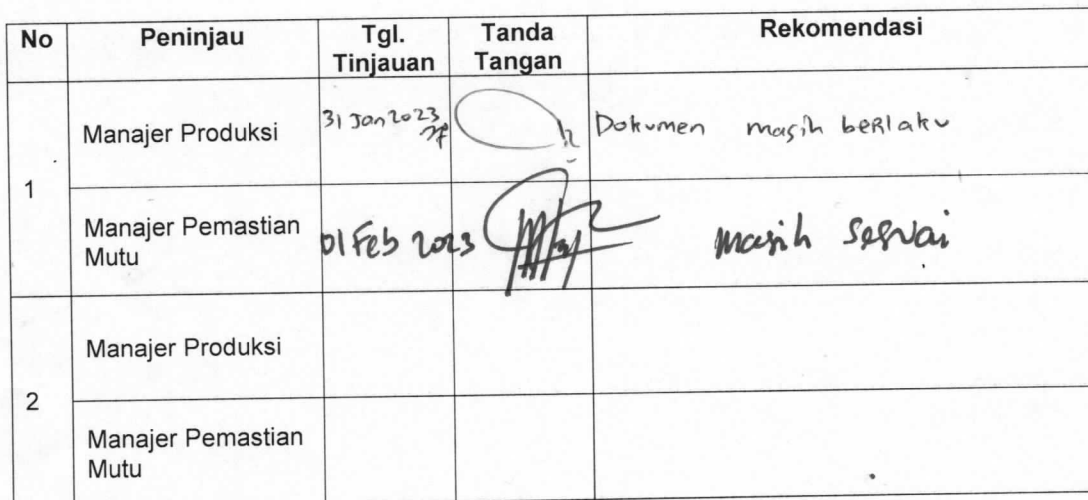 No Peninjau Tgl. Tinjauan Tanda Tangan Rekomendasi
1
Manajer Produksi 31 Jan 2023 Dokumen masih berlaku
Manajer Pemastian Mutu 01 Feb 2023 masih sesuai
2
Manajer Produksi
Manajer Pemastian Mutu